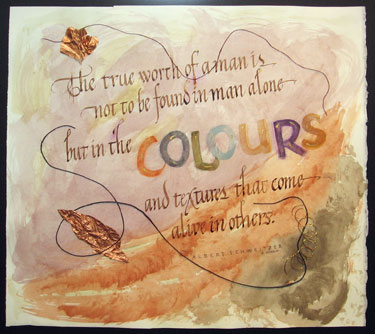 The true worth of a man is
not to be found in man alone
but in the COLOURS
and textures that come
alive in others.
ALBERT SCHWEITZER